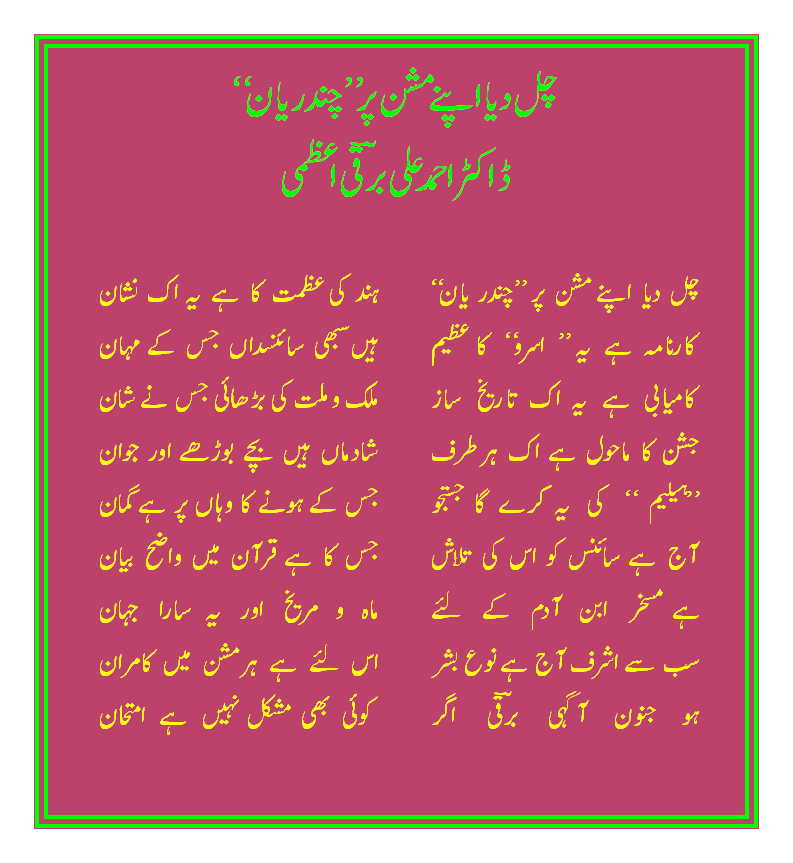 چل دیا اپنے مشن پر ’’چندریان‘‘
ڈاکٹر احمد علی برقیؔ اعظمی
چل دیا اپنے مشن پر ’’چندر یان‘‘ ہند کی عظمت کا ہے یہ اک نشان
کارنامہ ہے یہ ’’ اسرو‘‘ کا عظیم ہیں سبھی سائنسداں جس کے مہان
کامیابی ہے یہ اک تاریخ ساز ملک و ملت کی بڑھائی جس نے شان
جشن کا ماحول ہے اک ہر طرف شادماں ہیں بچے بوڑھے اور جوان
’’ہیلیم ‘‘ کی یہ کرے گا جستجو جس کے ہونے کا وہاں پر ہے گمان
آج ہے سائنس کو اس کی تلاش جس کا ہے قرآن میں واضح بیان
ہے مسخر ابن آدم کے لئے ماہ و مریخ اور یہ سارا جہان
سب سے اشرف آج ہے نوع بشر اس لئے ہے ہر مشن میں کامران
ہو جنون آگہی برقیؔ اگر کوئی بھی مشکل نہیں ہے امتحان